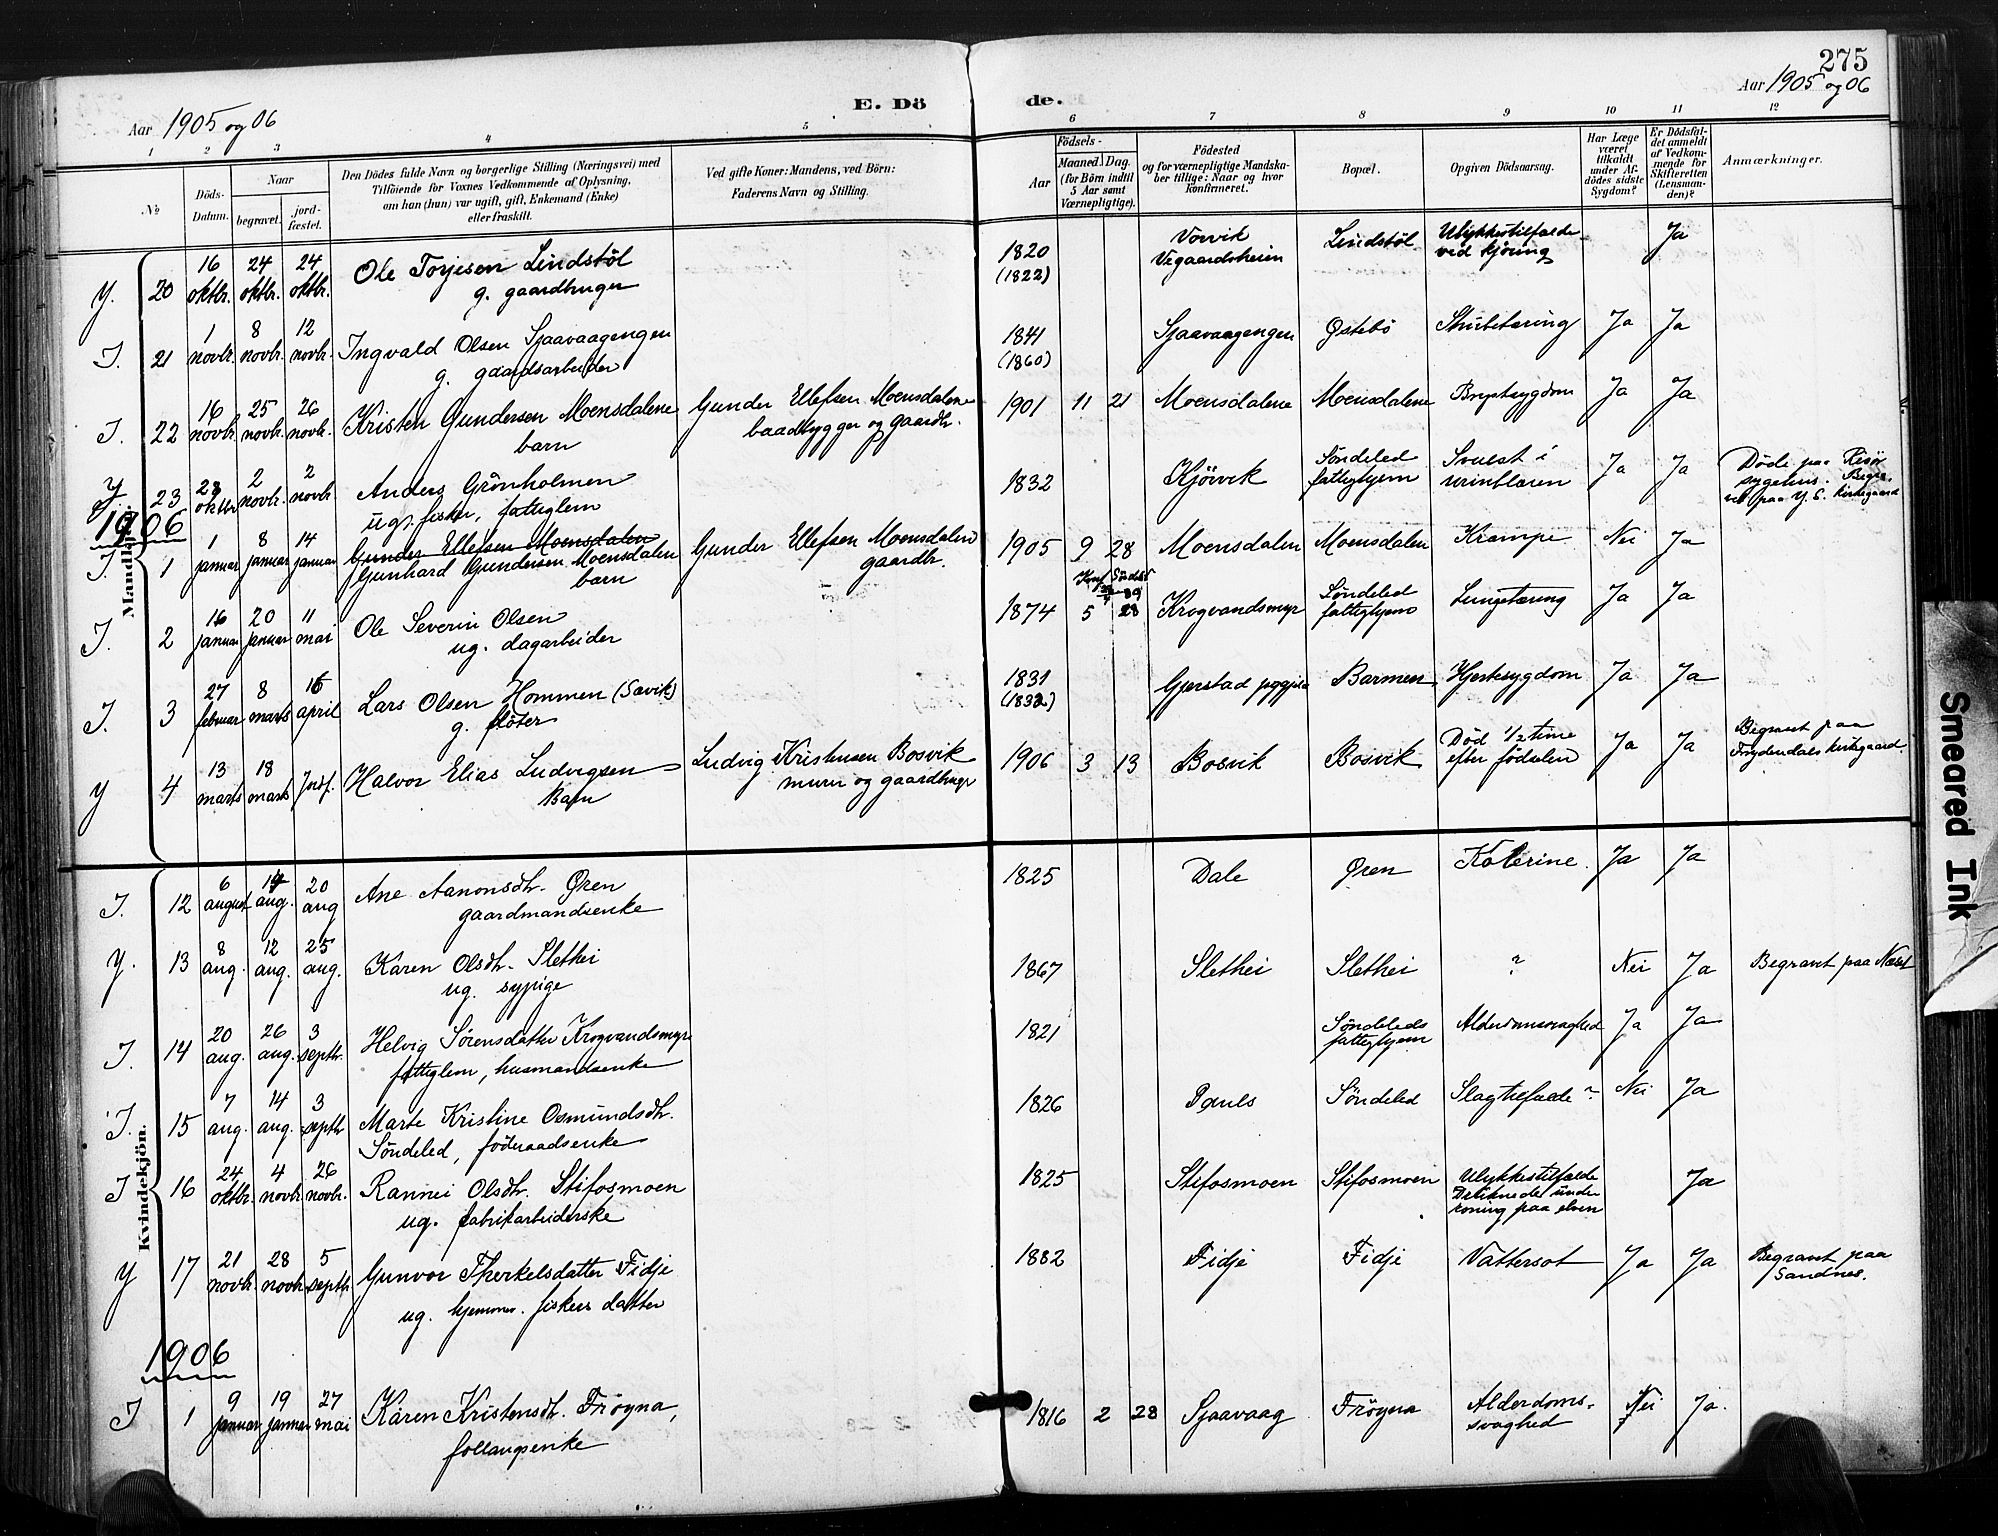 275
Aar 1905 og 06
E. Dö
de.
Aar 1905 og 06
1 2 3 4 5 6 7 8 9 10 11 12
№
Döds-
Datum.
Naar
begravet.
jord-
fæstet.
Den Dödes fulde Navn og borgerlige Stilling (Næringsvei) med
Tilföiende for Voxnes Vedkommende af Oplysning,
om han (hun) var ugift, gift, Enkemand (Enke)
eller fraskilt.
Ved gifte Koner: Mandens, ved Börn:
Faderens Navn og Stilling.
Födsels-
Aar
Maaned. Dag.
(for Börn indtil
5 Aar samt
Værnepligtige).
Födested
og for værnepligtige Mandska-
ber tillige: Naar og hvor
konfirmeret.
Bopæl.
Opgiven Dödsaarsag.
Har Læge
været
tilkaldt
under Af-
dödes sidste
Sygdom?
Er Dödsfal-
det anmeldt
af Vedkom-
mende for
Skifteretten
(Lensman-
den)?
Anmærkninger.
Mandkjön.
Y. 20 16 oktbr. 24 oktbr. 24 oktbr. Ole Torjesen Lindstöl
g. gaardbruger
1820 (1822) Vegaardsheien Lindstöl Ulykkestilfælde ved kjöring Ja
I. 21 1 novbr. 8 novbr. 12 novbr. Ingvald Olsen Sjaavaagengen
g. gaardsarbeider
1841 (1860) Sjaavaagengen Østebö Strubetæring Ja Ja
I. 22 16 novbr. 25 novbr. 26 novbr. Kristen Gundersen Moensdalene
barn
Gunder Ellefsen Moensdalene
baadbygger og gaardbr.
1901 11 21 Moensdalene Moensdalene Brystsygdom Ja Ja
Y. 23 28 oktbr. 2 novbr. 2 novbr. Anders Grönholmen
ug. fisker, fattiglem
1832 Kjörvik Söndeled fattighjem Svulst i urinblæren Ja Ja Döde paa Risör sygehus. paa Y. S. kirkegaard
1906
I. 1 1 januar 8 januar 14 januar Gunder Ellefsen Moensdalen
Gunhard Gundersen Moensdalen
barn
Gunder Ellefsen Moensdalen
gaardbr.
1905 9 28 Moensdalen Moensdalen Krampe Nei Ja
I. 2 16 januar 20 januar 11 mai Ole Severin Olsen
ug. dagarbeider
1874 5 28 Krogvandsmyr Söndeled fattighjem Lungetæring Ja Ja
I. 3 27 februar 8 marts 16 april Lars Olsen Hommen (Sævik)
g. flöter
1831 (1832) Gjerstad Barmen Hjertesygdom Ja Ja
Y 4 13 marts 18 marts Halvor Elias Ludvigsen
Barn
Ludvig Kristensen Bosvik
murer og gaardbruger
1906 3 13 Bosvik Bosvik Död 1/2 time efter födselen Ja Ja Begravet paa Frydendals kirkegaard.
Kvindekjön.
I. 12 6 august 14 aug. 20 aug Ane Aanonsdtr. Øren
gaardmandsenke
1825 Dale Øren Kolerine. Ja Ja
Y. 13 8 aug. 12 aug. 25 aug. Karen Olsdtr. Slethei
ug. sypige
1867 Slethei Slethei ? Nei Ja Begravet paa Næset
I. 14 20 aug. 26 aug. 3 septbr. Helvig Sörensdatter Krogvandsmyr
fattiglem, husmandsenke
1821 Söndeleds fattighjem Alderdomssvaghed Ja Ja
I. 15 7 aug. 14 aug. 3 septbr Marte Kristine Osmundsdtr.
Söndeled, föderaadsenke
1826 Söndeled Slagtilfælde? Nei Ja
I 16 24 oktbr. 4 novbr. 26 novbr. Rannei Olsdtr. Stifosmoen
ug. fabrikarbeiderske
1825 Stifosmoen Stifosmoen Ulykkestilfælde Druknede under roning paa elven Ja
Y 17 21 novbr. 28 novbr. 5 septbr. Gunvor Therkelsdatter Fidje
ug. hjemmev. fiskers datter
1882 Fidje Fidje Vattersot Ja Ja Begravet paa Sandnes.
1906
I 1 9 januar 19 januar 27 mai Karen Kristensdtr. Fröyna,
follaugsenke
1816 2 28 Sjaavaag Fröyna Alderdoms-svaghed Nei Ja.
Smeared Ink